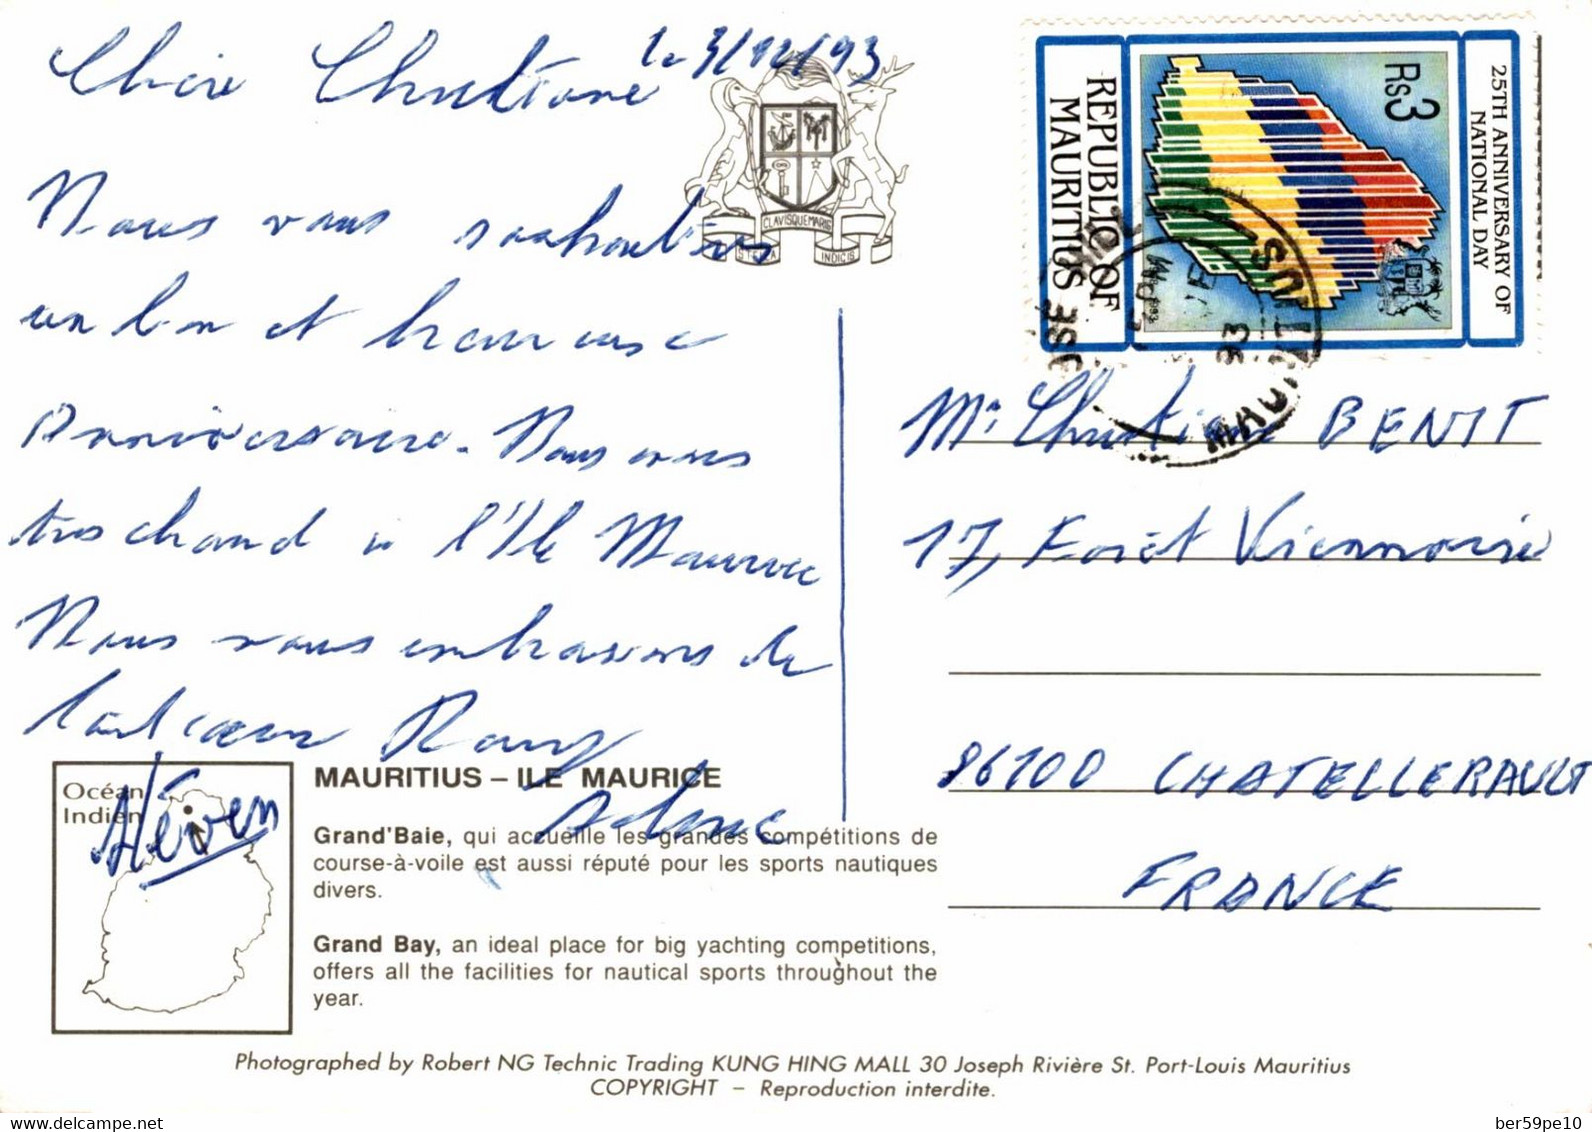 le 3/12/93
Chère Christiane
Nous vous souhaitons
un bon et heureuse
Anniversaire. Nous avons
très chaud à l'Ile Maurice
Nous vous embrassons de
tout cœur
Océan
Indien
MAURITIUS – ILE MAURICE
Grand'Baie, qui accueille les grandes compétitions de
course-à-voile est aussi réputé pour les sports nautiques
divers.
Grand Bay, an ideal place for big yachting competitions,
offers all the facilities for nautical sports throughout the
year.
Photographed by Robert NG Technic Trading KUNG HING MALL 30 Joseph Rivière St. Port-Louis Mauritius
COPYRIGHT – Reproduction interdite.
CLAVISQUE MARIS
STELLA INDICIS
25TH ANNIVERSARY OF
NATIONAL DAY
Rs3
REPUBLIC OF
MAURITIUS
MAURITIUS
93
Christiane BENIT
17, Forêt
86100 CHATELLERAULT
FRANCE
delcampe.net
ber59pe10